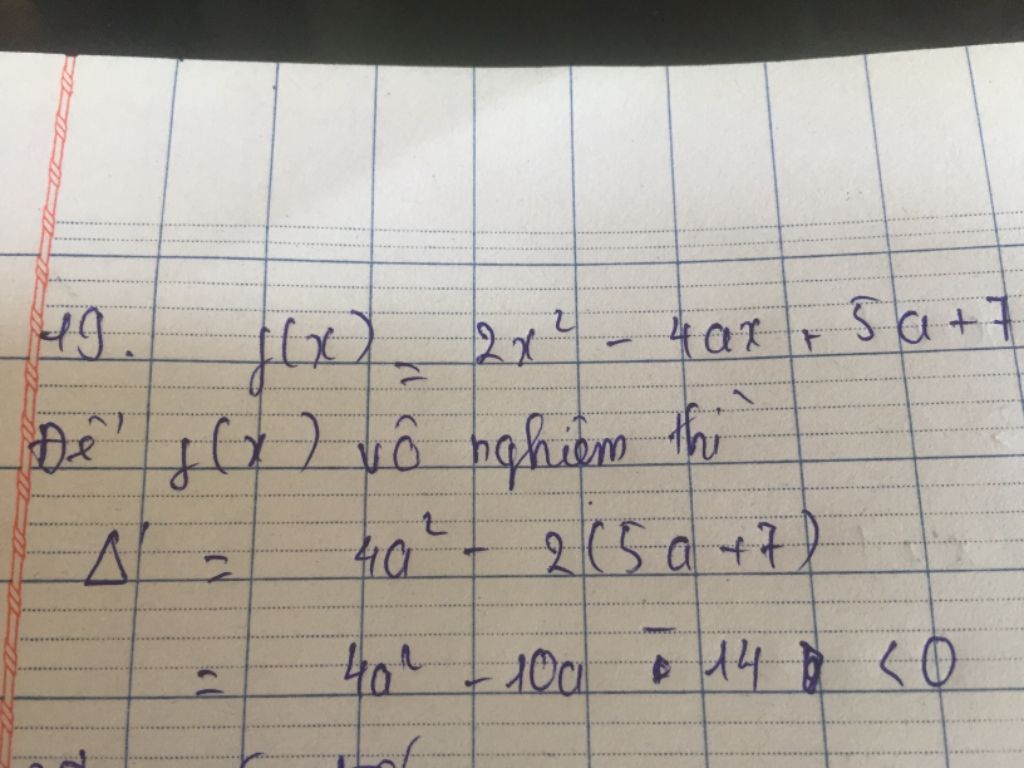 19. f(x) = 2x² - 4ax + 5a + 7
Để f(x) vô nghiệm thì
Δ' = 4a² - 2(5a + 7)
= 4a² - 10a - 14 < 0